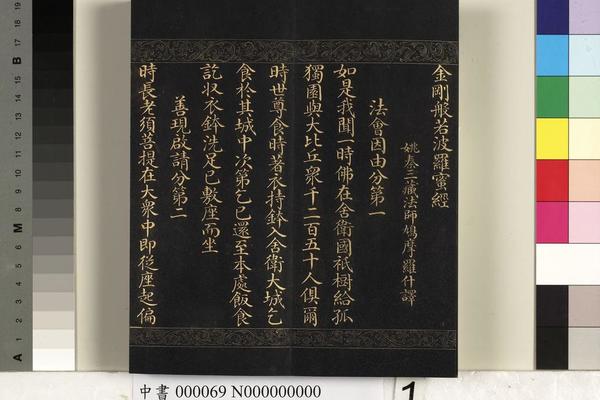 金剛般若波羅蜜經
姚秦三藏法師鳩摩羅什譯
法會因由分第一
如是我聞一時佛在舍衛國祇樹給孤
獨園與大比丘衆千二百五十人俱爾
時世尊食時著衣持鉢入舍衛大城乞
食於其城中次第乞已還至本處飯食
訖収衣鉢洗足已敷座而坐
善現啟請分第二
時長老須菩提在大衆中即從座起偏
中書 000069 N000000000
1
19
18
17
16
15
14
13
12
11
10
9
8
7
6
5
4
3
2
1
B
M
A